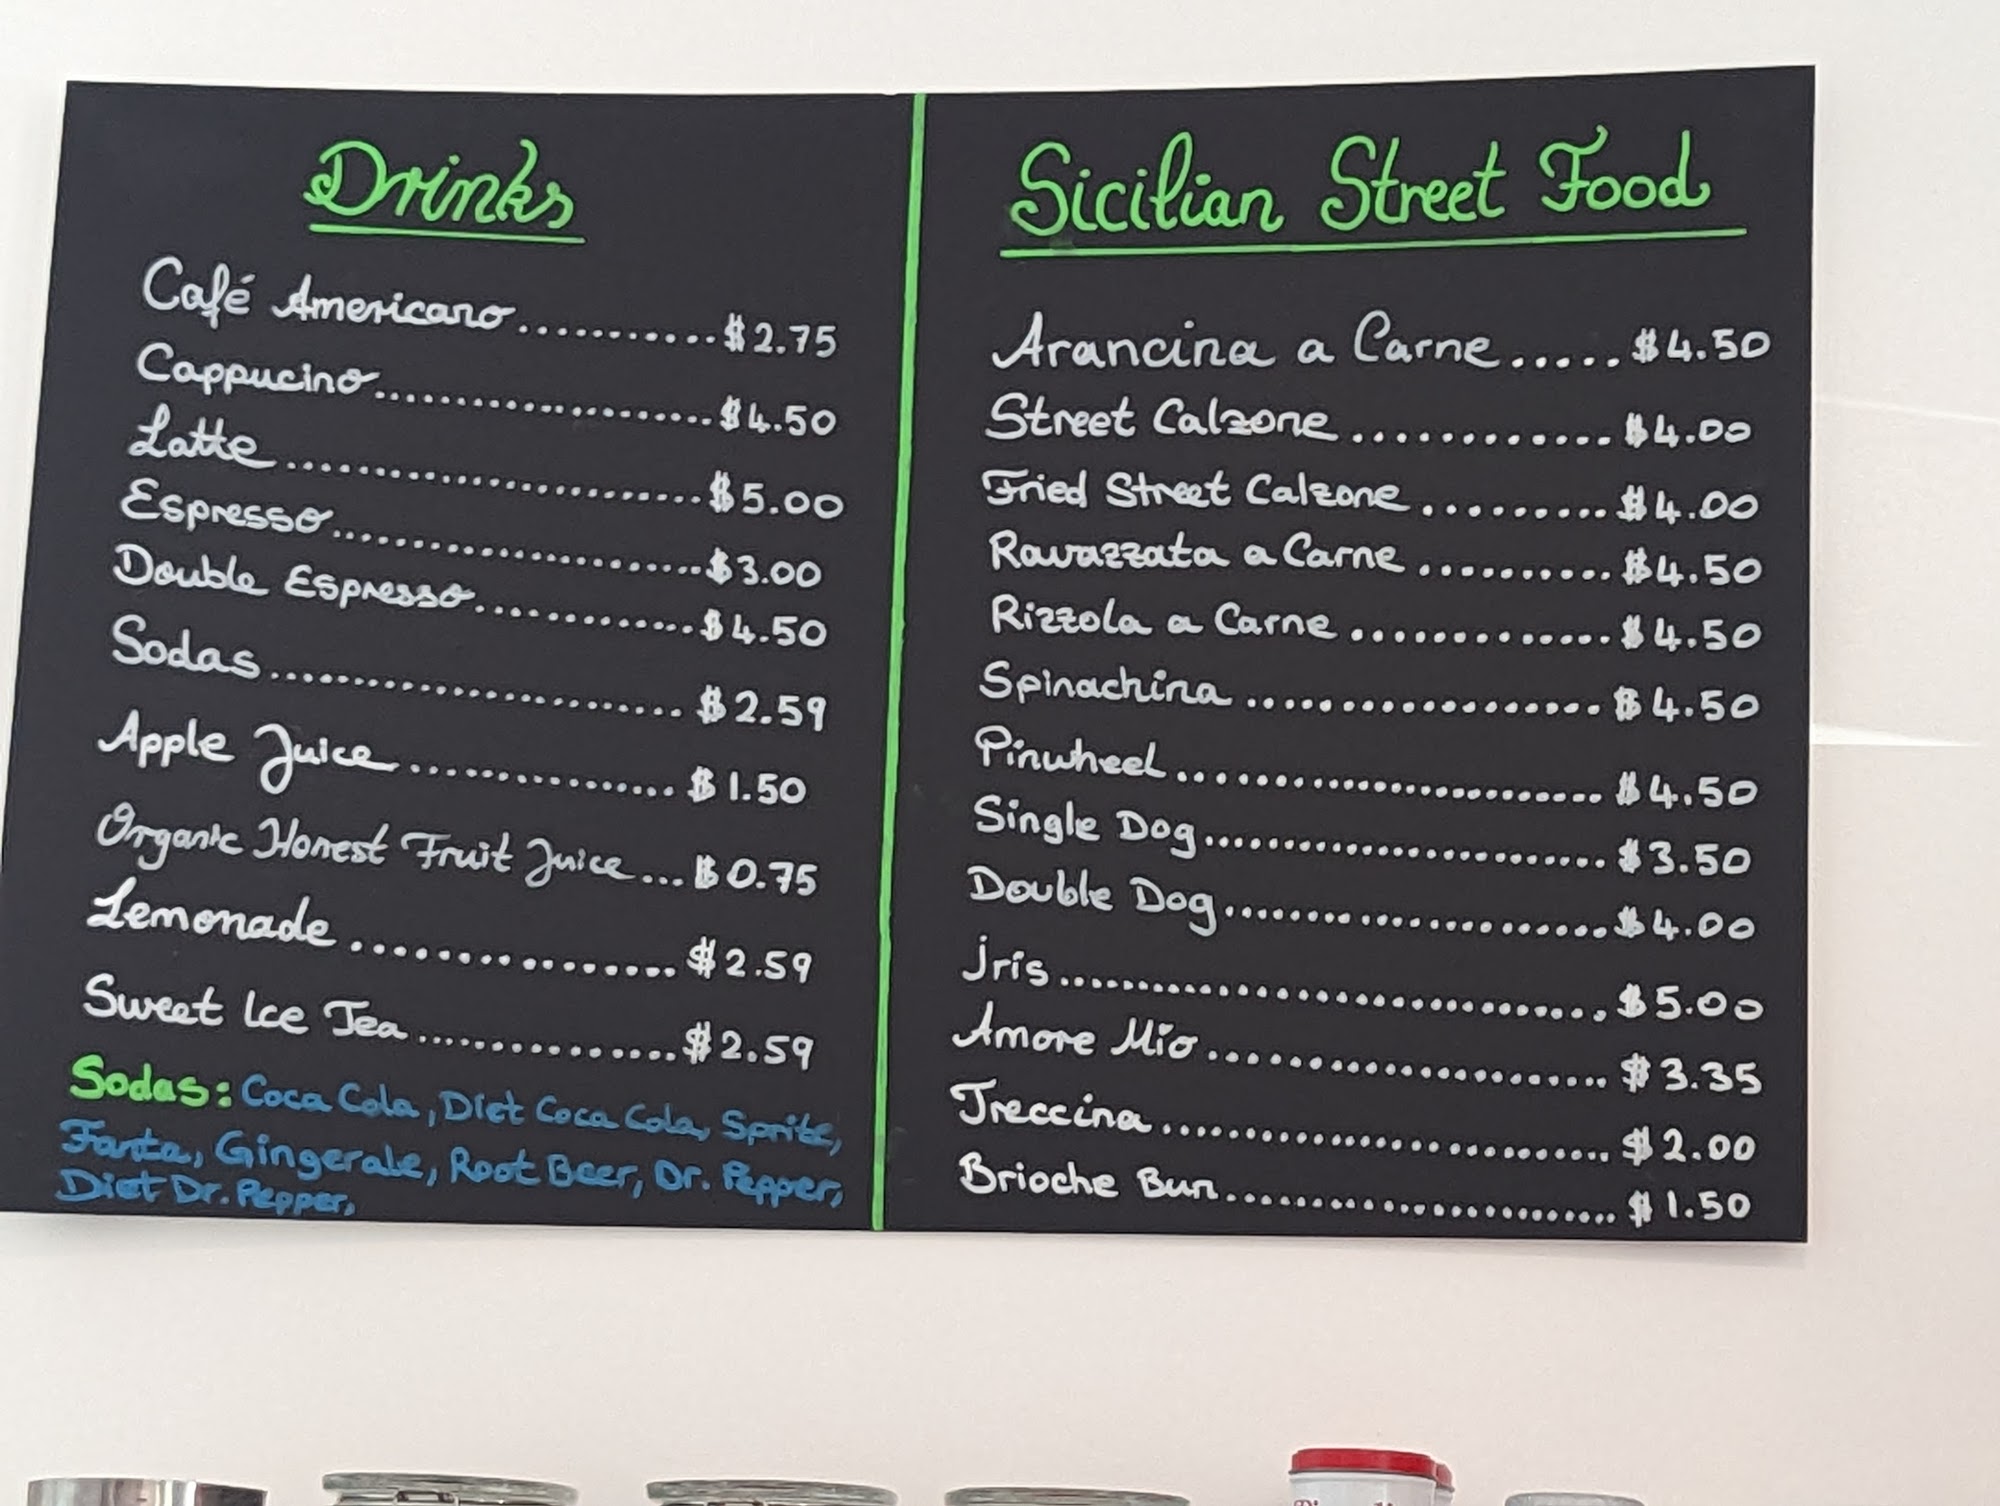 Drinks
Café Americano...........$2.75
Cappucino.....................$4.50
Latte..........................$5.00
Espresso.......................$3.00
Double Espresso..............$4.50
Sodas..........................$2.59
Apple Juice.................$1.50
Organic Honest Fruit Juice...$0.75
Lemonade................$2.59
Sweet Ice Tea...............$2.59
Sodas: Coca Cola, Diet Coca Cola, Sprite,
Fanta, Gingerale, Root Beer, Dr. Pepper,
Diet Dr. Pepper,
Sicilian Street Food
Arancina a Carne.....$4.50
Street Calzone............$4.00
Fried Street Calzone.........$4.00
Ravazzata a Carne..........$4.50
Rizzola a Carne.............$4.50
Spinachina..................$4.50
Pinwheel........................$4.50
Single Dog........................$3.50
Double Dog......................$4.00
jris..............................$5.00
Amore Mio.......................$3.35
Treccina.........................$2.00
Brioche Bun......................$1.50